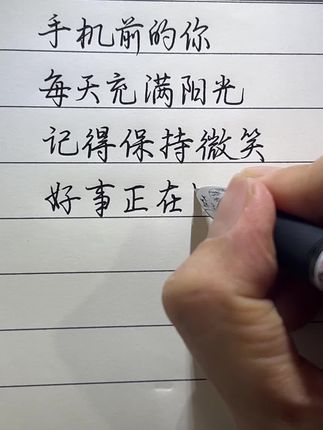 手机前的你
每天充满阳光
记得保持微笑
好事正在